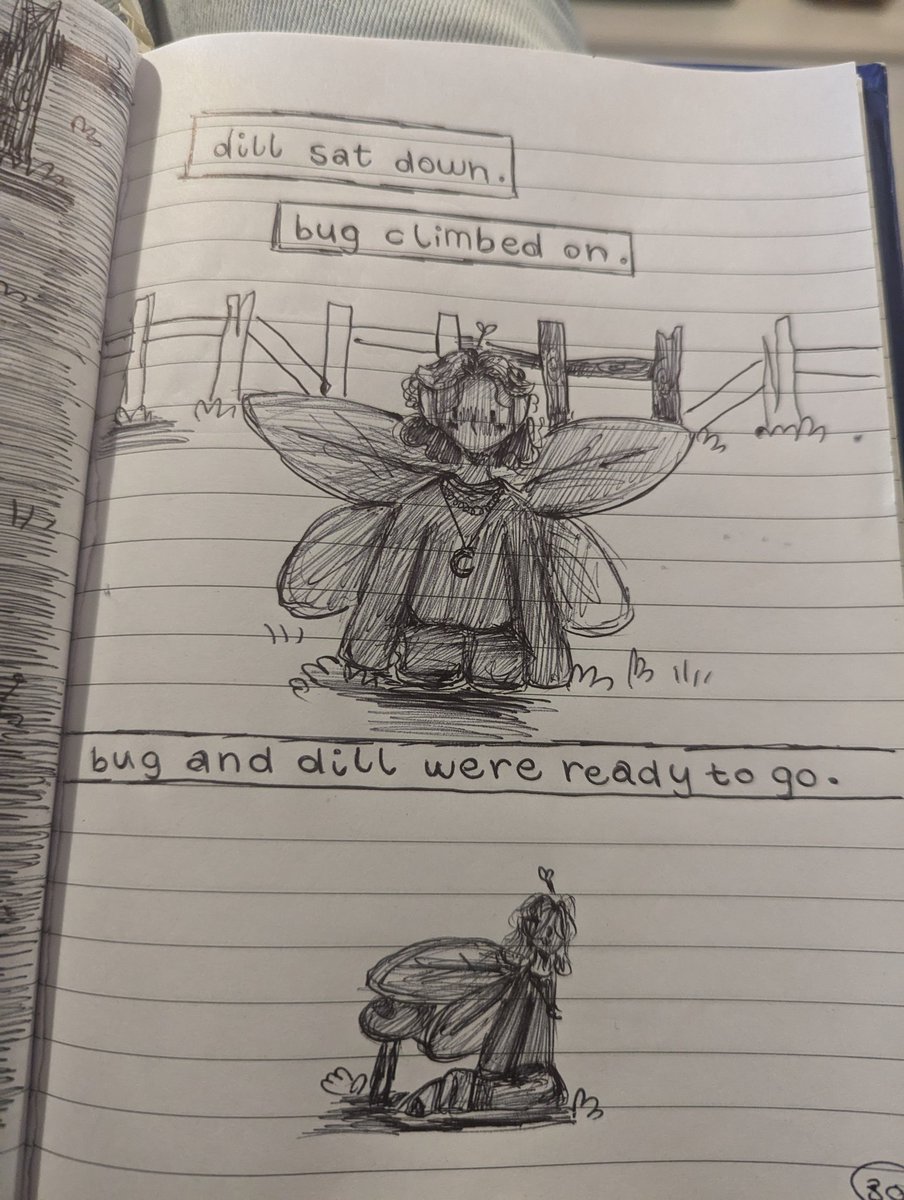 dill sat down.
bug climbed on.
bug and dill were ready to go.
30